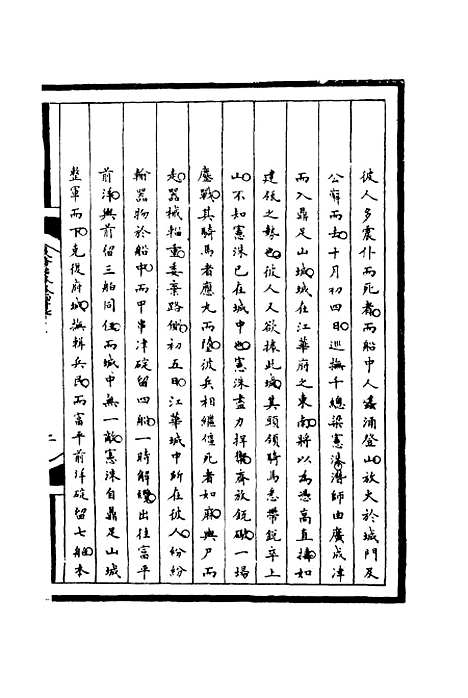 彼人多震仆而死者而船中人蟻涌登山放火於城門及
公廨而去十月初四日巡撫千總梁憲洙潛師由廣成津
而入鼎足山城城在江華府之東南將以為憑高直擣如
建筏之勢也彼人又欲據此城其頭領騎馬悉帶銳卒上
山不知憲洙已在城中也憲洙盡力捍禦齊放銃砲一場
鏖戰其騎馬者應丸而墮彼兵相繼僵死者如麻輿尸而
走器械輜重委棄路側初五日江華城中所在彼人紛紛
輸器物於船中而甲串津碇留四船一時解纜出往富平
前洋與前留三船同住而城中無一敵憲洙自鼎足山城
整軍而下克復府城撫輯兵民而富平前洋碇留七船本